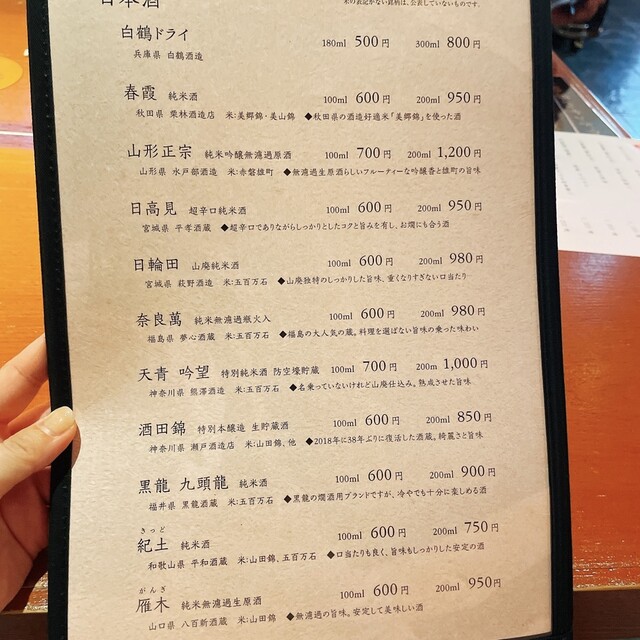 日本酒
米の表記がない銘柄は、公表していないものです。
白鶴ドライ 180ml 500円 300ml 800円
兵庫県 白鶴酒造
春霞 純米酒 100ml 600円 200ml 950円
秋田県 栗林酒造店 米:美郷錦・美山錦 ◆秋田県の酒造好適米「美郷錦」を使った酒
山形正宗 純米吟醸無濾過原酒 100ml 700円 200ml 1,200円
山形県 水戸部酒造 米:赤磐雄町 ◆無濾過生原酒らしいフルーティーな吟醸香と雄町の旨味
日高見 超辛口純米酒 100ml 600円 200ml 950円
宮城県 平孝酒蔵 ◆超辛口でありながらしっかりとしたコクと旨みを有し、お燗にも合う酒
日輪田 山廃純米酒 100ml 600円 200ml 980円
宮城県 萩野酒造 米:五百万石 ◆山廃独特のしっかりした旨味、重くなりすぎない口当たり
奈良萬 純米無濾過瓶火入 100ml 600円 200ml 980円
福島県 夢心酒蔵 米:五百万石 ◆福島の大人気の蔵。料理を選ばない旨味の乗った味わい
天青 吟望 特別純米酒 防空壕貯蔵 100ml 700円 200ml 1,000円
神奈川県 熊澤酒造 米:五百万石 ◆名乗っていないけれど山廃仕込み。熟成させた旨味
酒田錦 特別本醸造 生貯蔵酒 100ml 600円 200ml 850円
神奈川県 瀬戸酒造店 米:山田錦、他 ◆2018年に38年ぶりに復活した酒蔵。綺麗さと旨味
黒龍 九頭龍 純米酒 100ml 600円 200ml 900円
福井県 黒龍酒蔵 米:五百万石 ◆黒龍の燗酒用ブランドですが、冷やでも十分に楽しめる酒
きっど
紀土 純米酒 100ml 600円 200ml 750円
和歌山県 平和酒蔵 米:山田錦、五百万石 ◆口当たりも良く、旨味もしっかりした安定の酒
がんぎ
雁木 純米無濾過生原酒 100ml 600円 200ml 950円
山口県 八百新酒蔵 米:山田錦 ◆無濾過の旨味。安定して美味しい酒